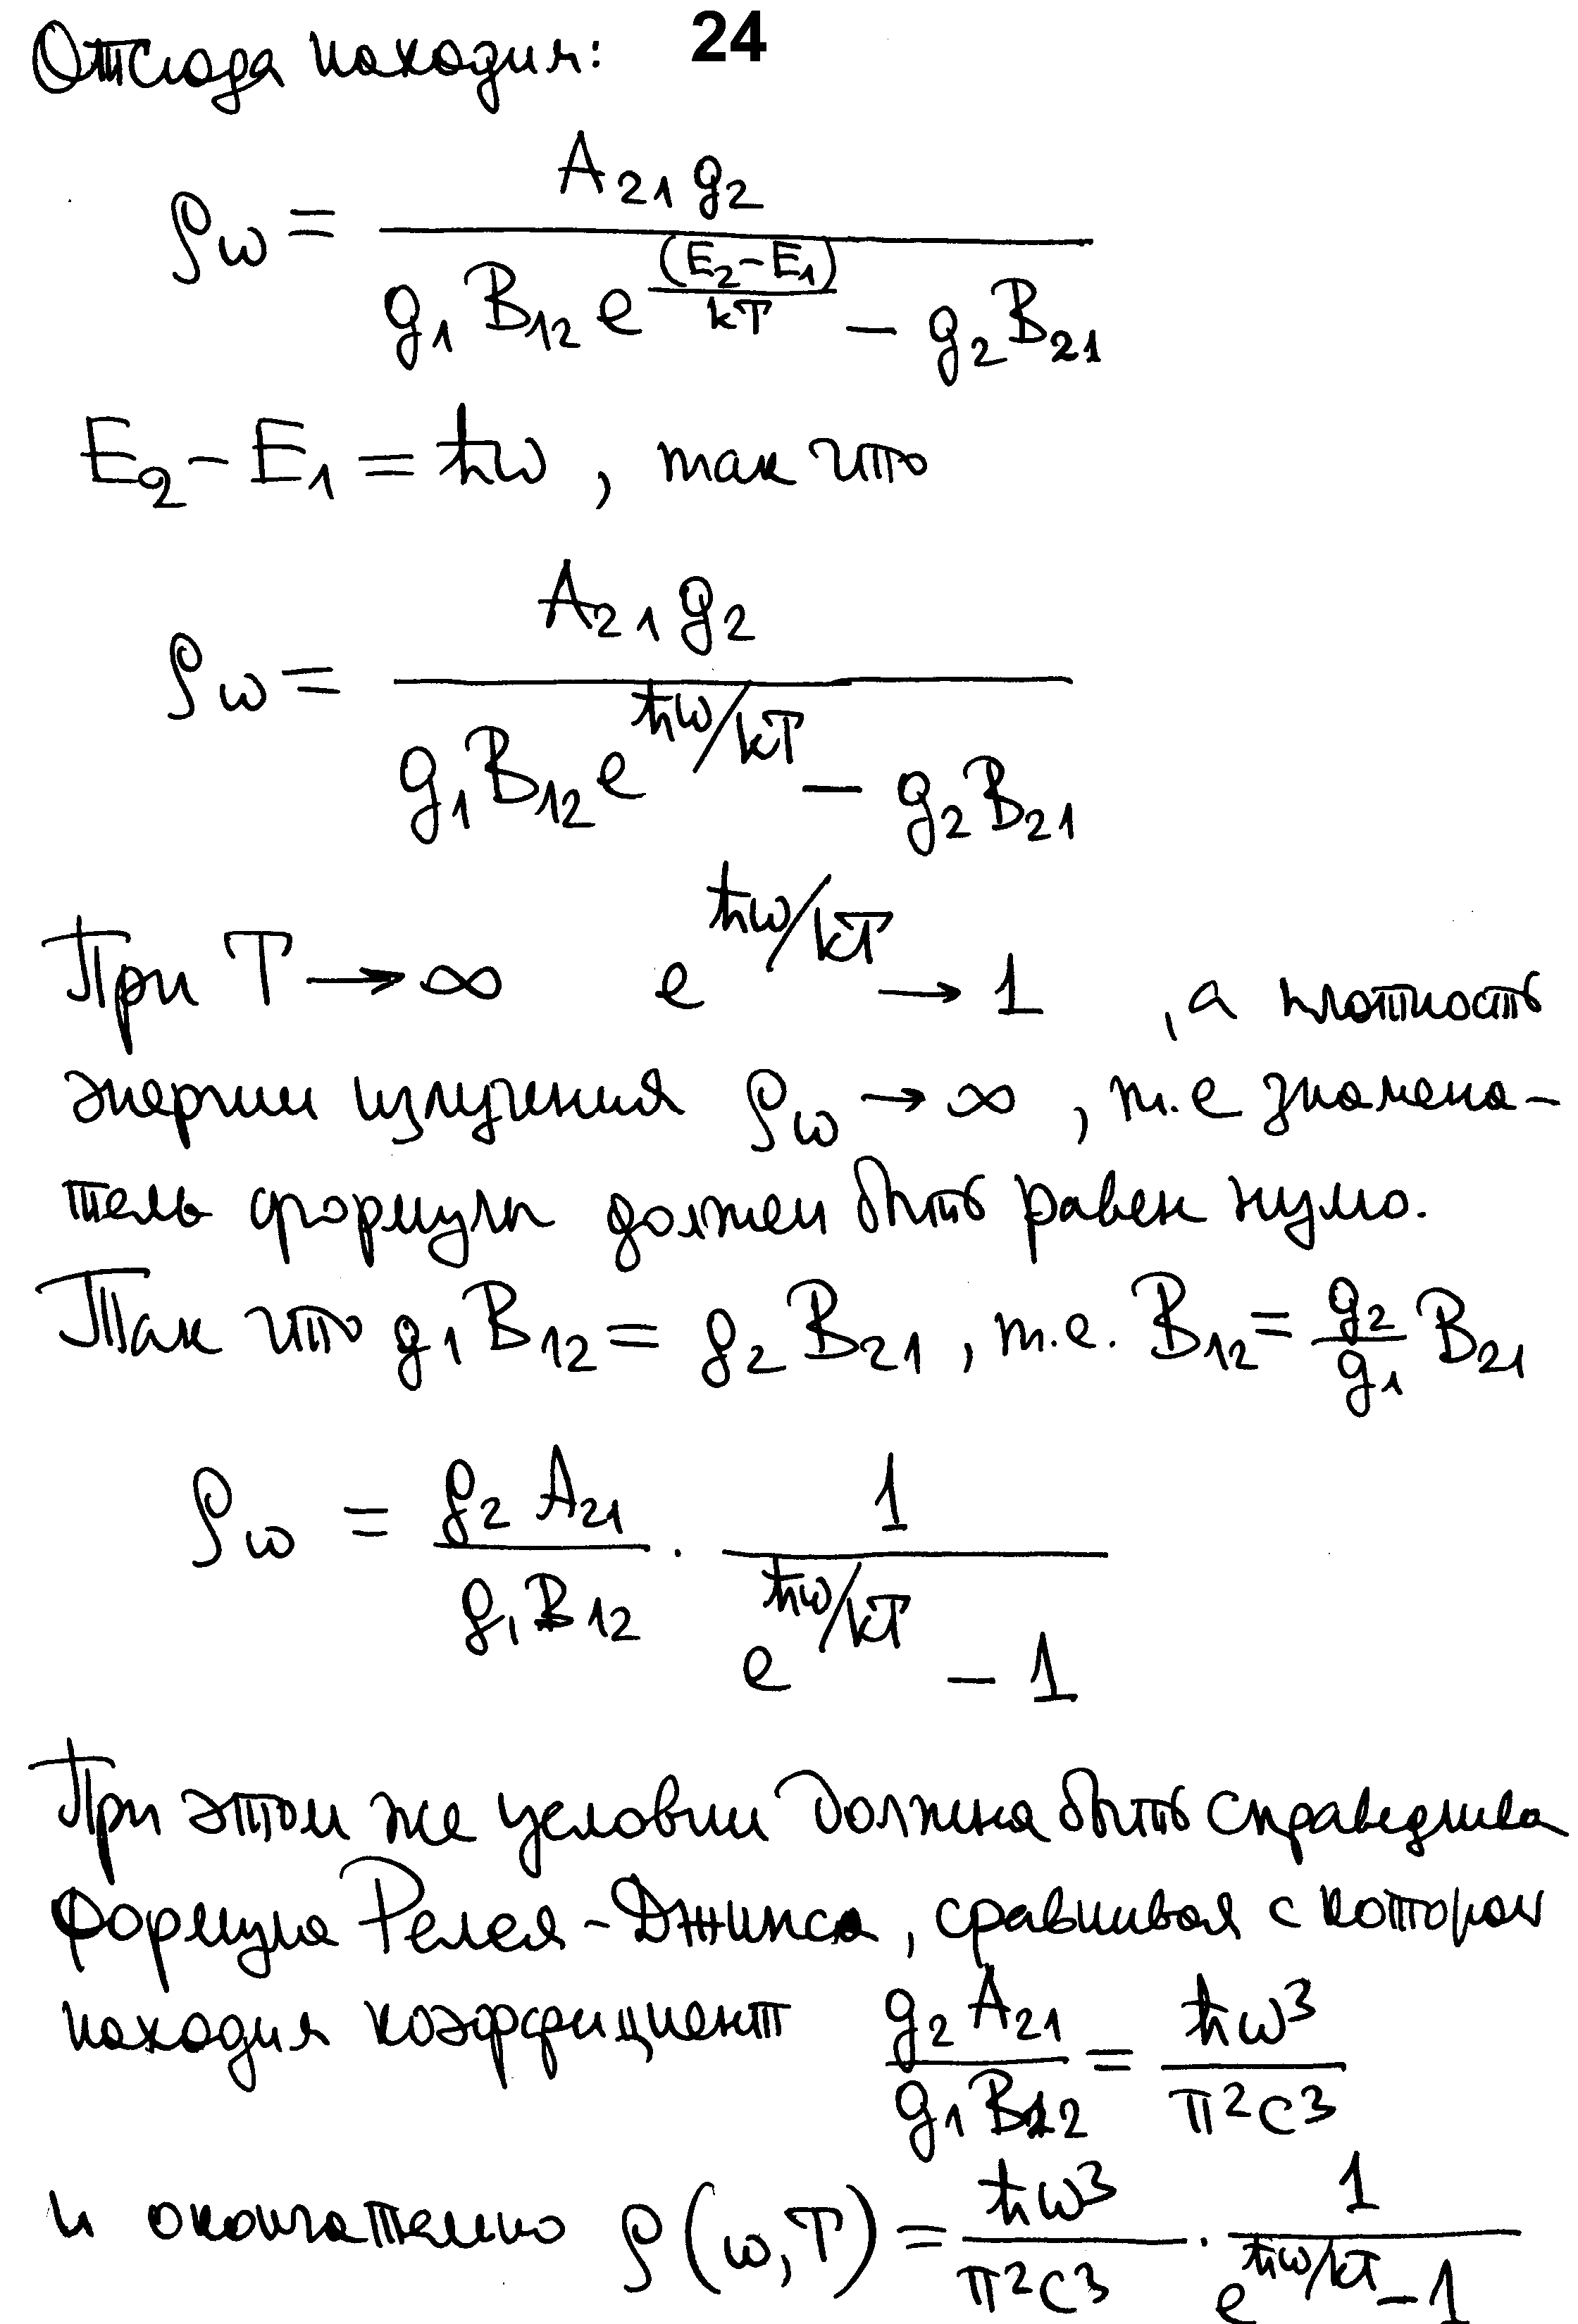 Отсюда находим: 24
ρω = A21 g2 / (g1 B12 e^((E2−E1)/kT) − g2 B21)
E2 − E1 = ħω , так что
ρω = A21 g2 / (g1 B12 e^(ħω/kT) − g2 B21)
При T → ∞ e^(ħω/kT) → 1 , а плотность
энергии излучения ρω → ∞ , т.е знамена-
тель формулы должен быть равен нулю.
Так что g1 B12 = g2 B21 , т.е. B12 = g2/g1 B21
ρω = g2 A21 / g1 B12 · 1 / (e^(ħω/kT) − 1)
При этом же условии должна быть справедлива
формула Релея-Джинса, сравнивая с которой
находим коэффициент g2 A21 / g1 B12 = ħω³ / π²c³
и окончательно ρ(ω,T) = ħω³ / π²c³ · 1 / (e^(ħω/kT) − 1)